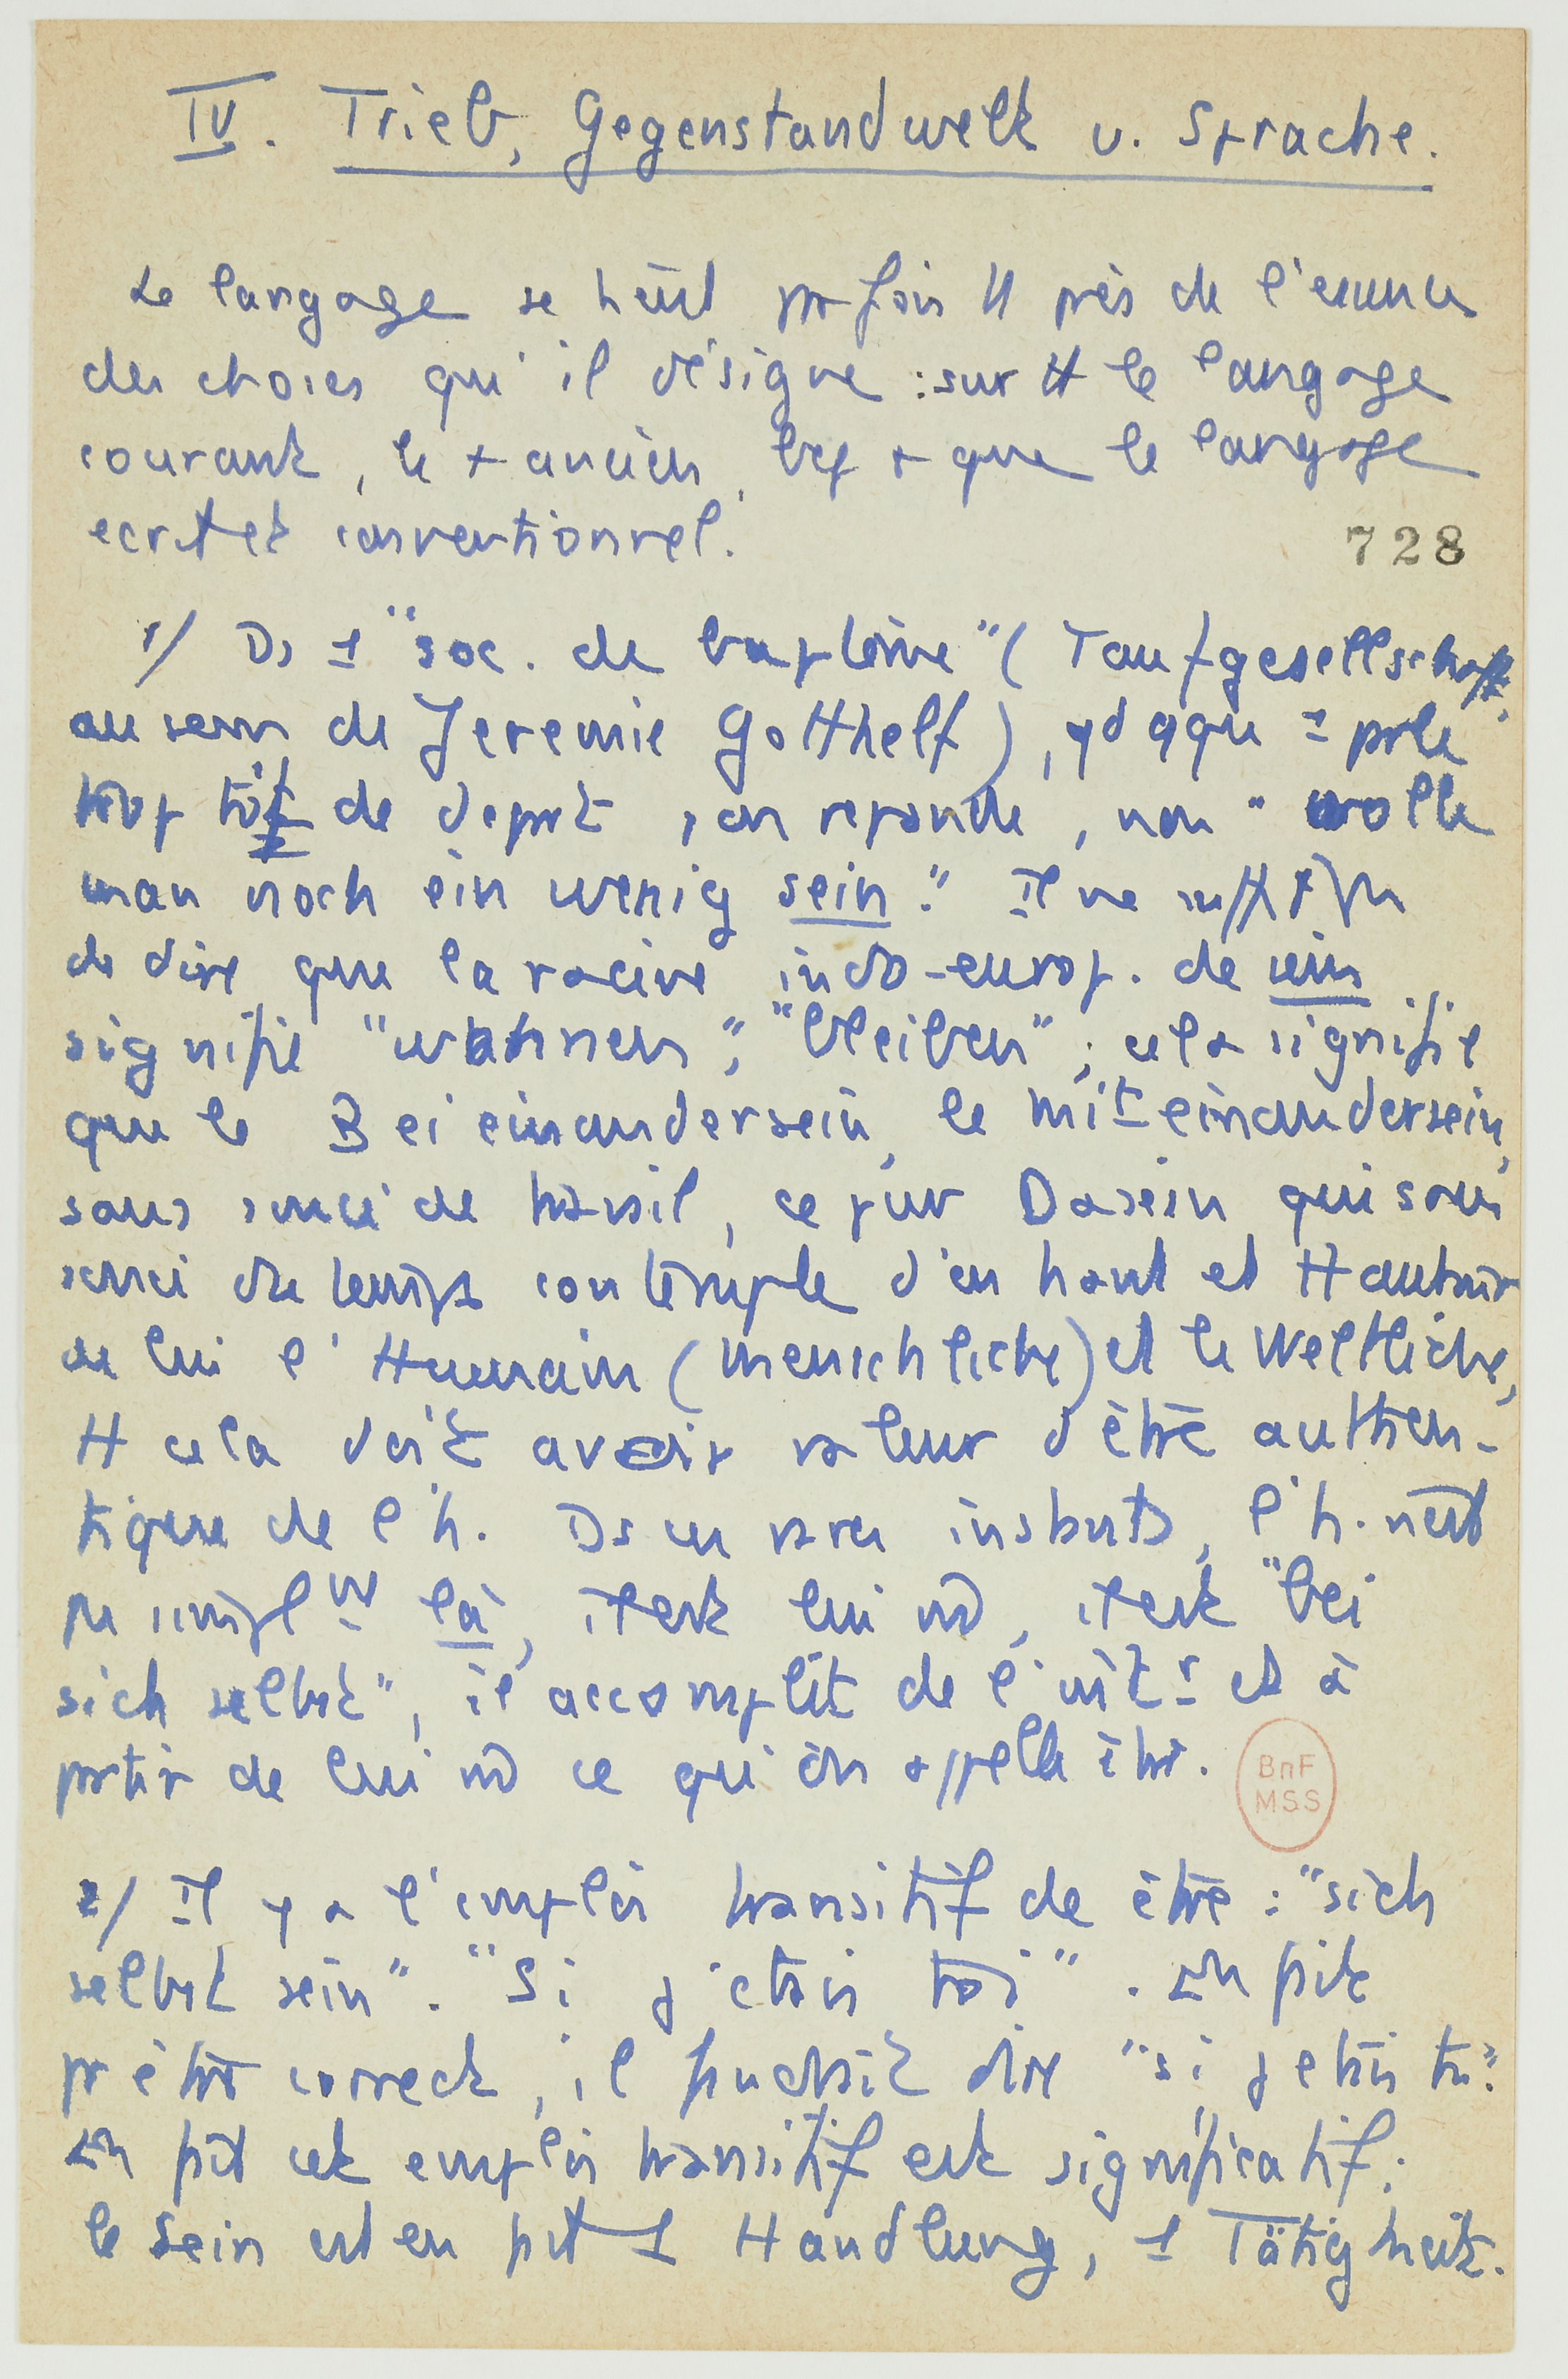 IV. Trieb, Gegenstandwelt u. Sprache.
Le langage se tient parfois tt près de l'essence
des choses qu'il désigne : surtt le langage
courant, le + ancien, bcp + que le langage
ecrit et conventionnel.
728
1/ Ds 1 "soc. de baptême" (Taufgesellschaft,
au sens de Jeremie Gotthelf), qd qqu'1 parle
trop tôt de depart, on reponde, non "wolle
man noch ein wenig sein". Il ne suffit pas
de dire que la racine indo-europ. de sein
signifie "wohnen", "bleiben" ; cela signifie
que le Beieinandersein, le Miteinandersein,
sans souci de travail, ce pur Dasein qui sans
souci du temps contemple d'en haut et tt autour
de lui l'Humain (Menschliche) et le Weltliche,
tt cela doit avoir valeur d'être authen-
tique de l'h. Ds ces rares instants, l'h. n'est
pas simplmt là, il est lui m̂, il est "bei
sich selbst", il accomplit de l'intr et à
partir de lui m̂ ce qu'on appelle être.
BnF
MSS
2/ Il y a l'emploi transitif de être : "sich
selbst sein". "Si j'etais toi". En fait
pr être correct, il faudrait dire "si j'etais tu".
En fait cet emploi transitif est significatif :
le Sein est en fait 1 Handlung, 1 Tätigkeit.